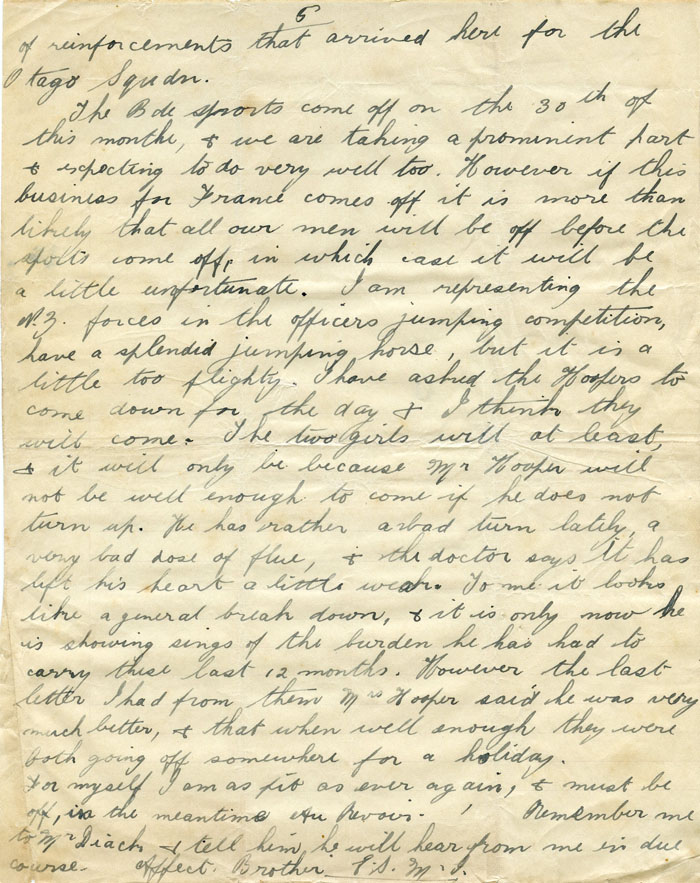 5
of reinforcements that arrived here for the
Otago Squdn.
The Bde sports come off on the 30th of
this monthe, & we are taking a prominent part
& expecting to do very well too. However if this
business for France comes off it is more than
likely that all our men will be off before the
sports come off, in which case it will be
a little unfortunate. I am representing the
N.Z. forces in the officers jumping competition,
have a splendid jumping horse, but it is a
little too flighty. I have asked the Hoopers to
come down for the day & I think they
will come. The two girls will at least,
& it will only be because Mr Hooper will
not be well enough to come if he does not
turn up. He has rather a bad turn lately, a
very bad dose of flue, & the doctor says it has
left his heart a little weak. To me it looks
like a general break down, & it is only now he
is showing sings of the burden he has had to
carry these last 12 months. However the last
letter I had from them Mrs Hooper said he was very
much better, & that when well enough they were
both going off somewhere for a holiday.
For myself I am as fit as ever again, & must be
off, in the meantime Au Revoir. Remember me
to Mr Diach & tell him, he will hear from me in due
course. Affect. Brother